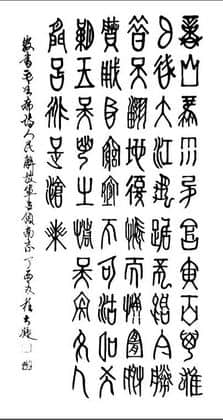 鐘山風雨起蒼黃百萬雄
師過大江虎踞龍盤今勝
昔天翻地覆慨而慷宜將
剩勇追窮寇不可沽名學
霸王天若有情天亦老人
間正道是滄桑
書毛主席詩人民解放軍占領南京